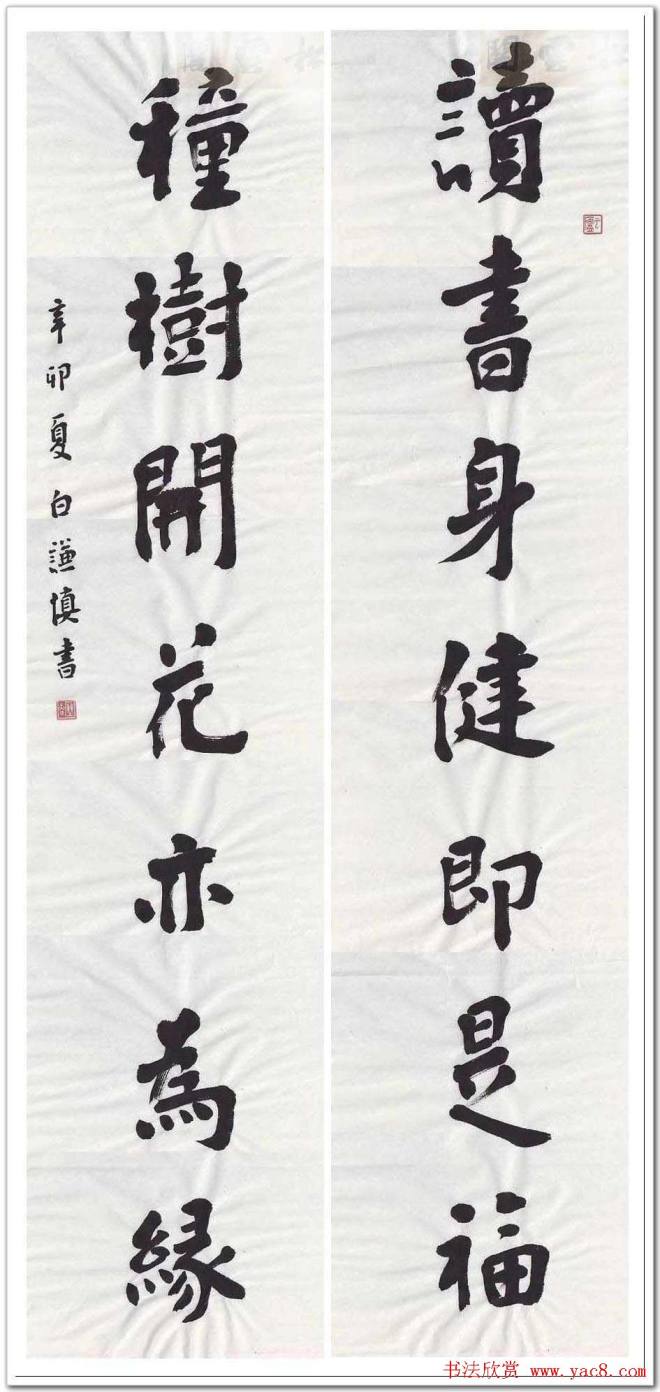 讀書身健即是福
種樹開花亦為緣
辛卯夏白謙慎書
书法欣赏 www.yac8.com